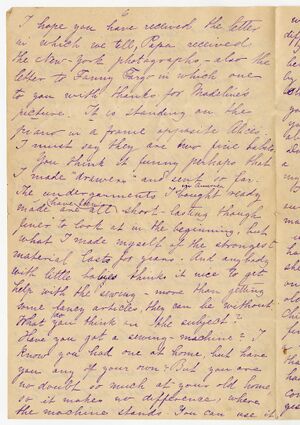 I hope you have received the letter
in which we tell, Papa received
the New-York photographs - also the
letter to Fanny Fargo in which one
to you with thanks for Madeline's
picture. It is standing on the
piano in a frame opposite Alice's,
I must say they are two fine babies,
You think it funny perhaps that
I made "drawers" and sent so far.
The undergarments I bought ready
in America
made are all short-lasting though
(have been)
finer to look at in the beginning, but
what I made myself of the strongest
material lasts for years. And anybody
with little babies thinks it nice to get
help with the sewing more than getting
some fancy articles, they can be without.
What you think in the subject?
Have you got a sewing-machine? I
know you had one at home, but have
you any of your own? But you are
no doubt so much at your old home
so it makes no difference, where
the machine stands. You can use it